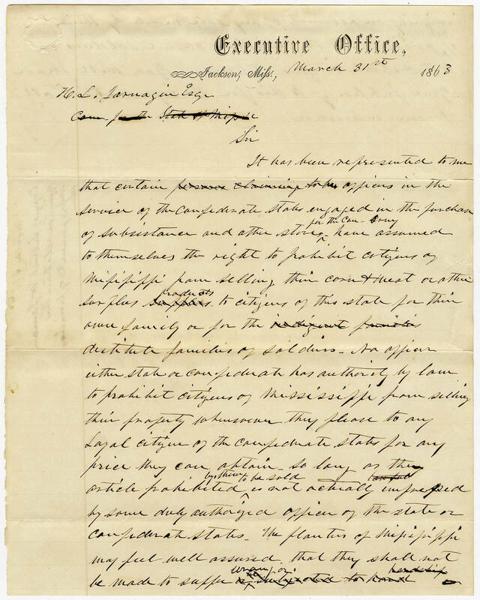 Executive Office,
Jackson, Miss, March 31st 1863
H. L. Jarnagin Esqr
Com for the State of Mississippi
Sir
It has been represented to me
that certain persons claiming to be officers in the
service of the Confederate States engaged in the purchase
for the Con. Army
of subsistance and other stores have assumed
to themselves the right to prohibit citizens of
Mississippi from selling their corn & meat or other
products
surplus supplies to citizens of this state for their
own family or for the indigent families
destitute families of soldiers. No officer
either state or confederate has authority by law
to prohibit citizens of Mississippi from selling
their property whensoever they please to any
loyal citizen of the confederate states for any
price they can obtain so long as the
by them to be sold
article prohibited is not actually impressed
by some duly authorized officer of the state or
confederate states. The planters of Mississippi
may feel well assured that they shall not
wrong or
be made to suffer subjected to hardship